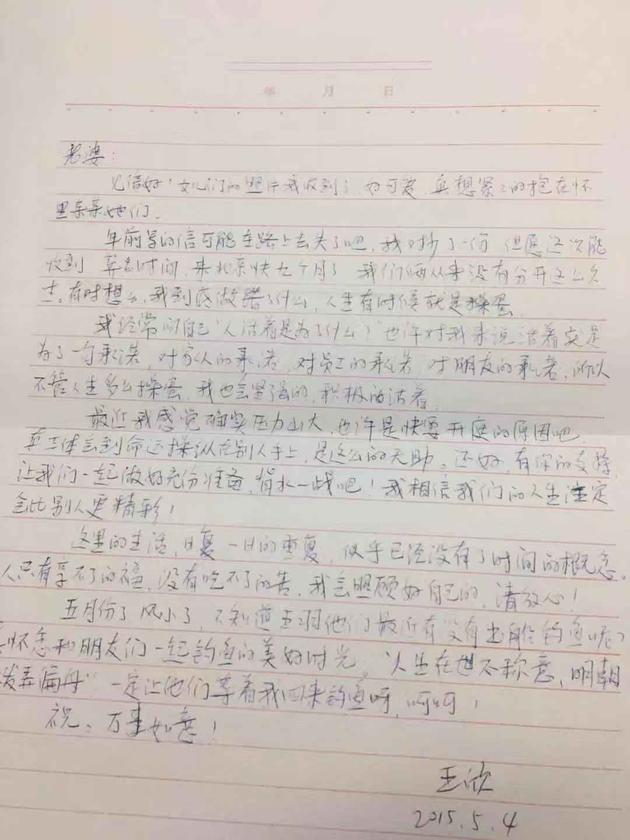 年 月 日
老婆：
见信好！女儿们的照片我收到了，好可爱，真想紧紧的抱在怀
里亲亲她们。
年前写的信可能在路上丢失了吧，我又抄了一份，但愿这次能
收到。算起时间，来北京快九个月了，我们俩从来没有分开这么久
过。有时想想，我到底做错了什么，人生有时候就是操蛋。
我经常问自己"人活着是为了什么？"也许对我来说活着更是
为了一句承诺，对家人的承诺，对员工的承诺，对朋友的承诺，所以
不管人生多么操蛋，我也会坚强的，积极的活着。
最近我感觉确实压力山大，也许是快要开庭的原因吧。
真正体会到命运操纵在别人手上，是这么的无助。还好，有你的支持，
让我们一起做好充份准备，背水一战吧！我相信我们的人生注定
会比别人更精彩！
这里的生活，日复一日的重复，似乎已经没有了时间的概念。
人只有享不了的福，没有吃不了的苦，我会照顾好自己的，请放心！
五月份了，风小了，不知道王羽他们最近有没有出船钓鱼呢？
怀念和朋友们一起钓鱼的美好时光，"人生在世不称意，明朝
散发弄扁舟"一定让他们等着我回来钓鱼呀，呵呵！
祝：万事如意！
王欣
2015.5.4